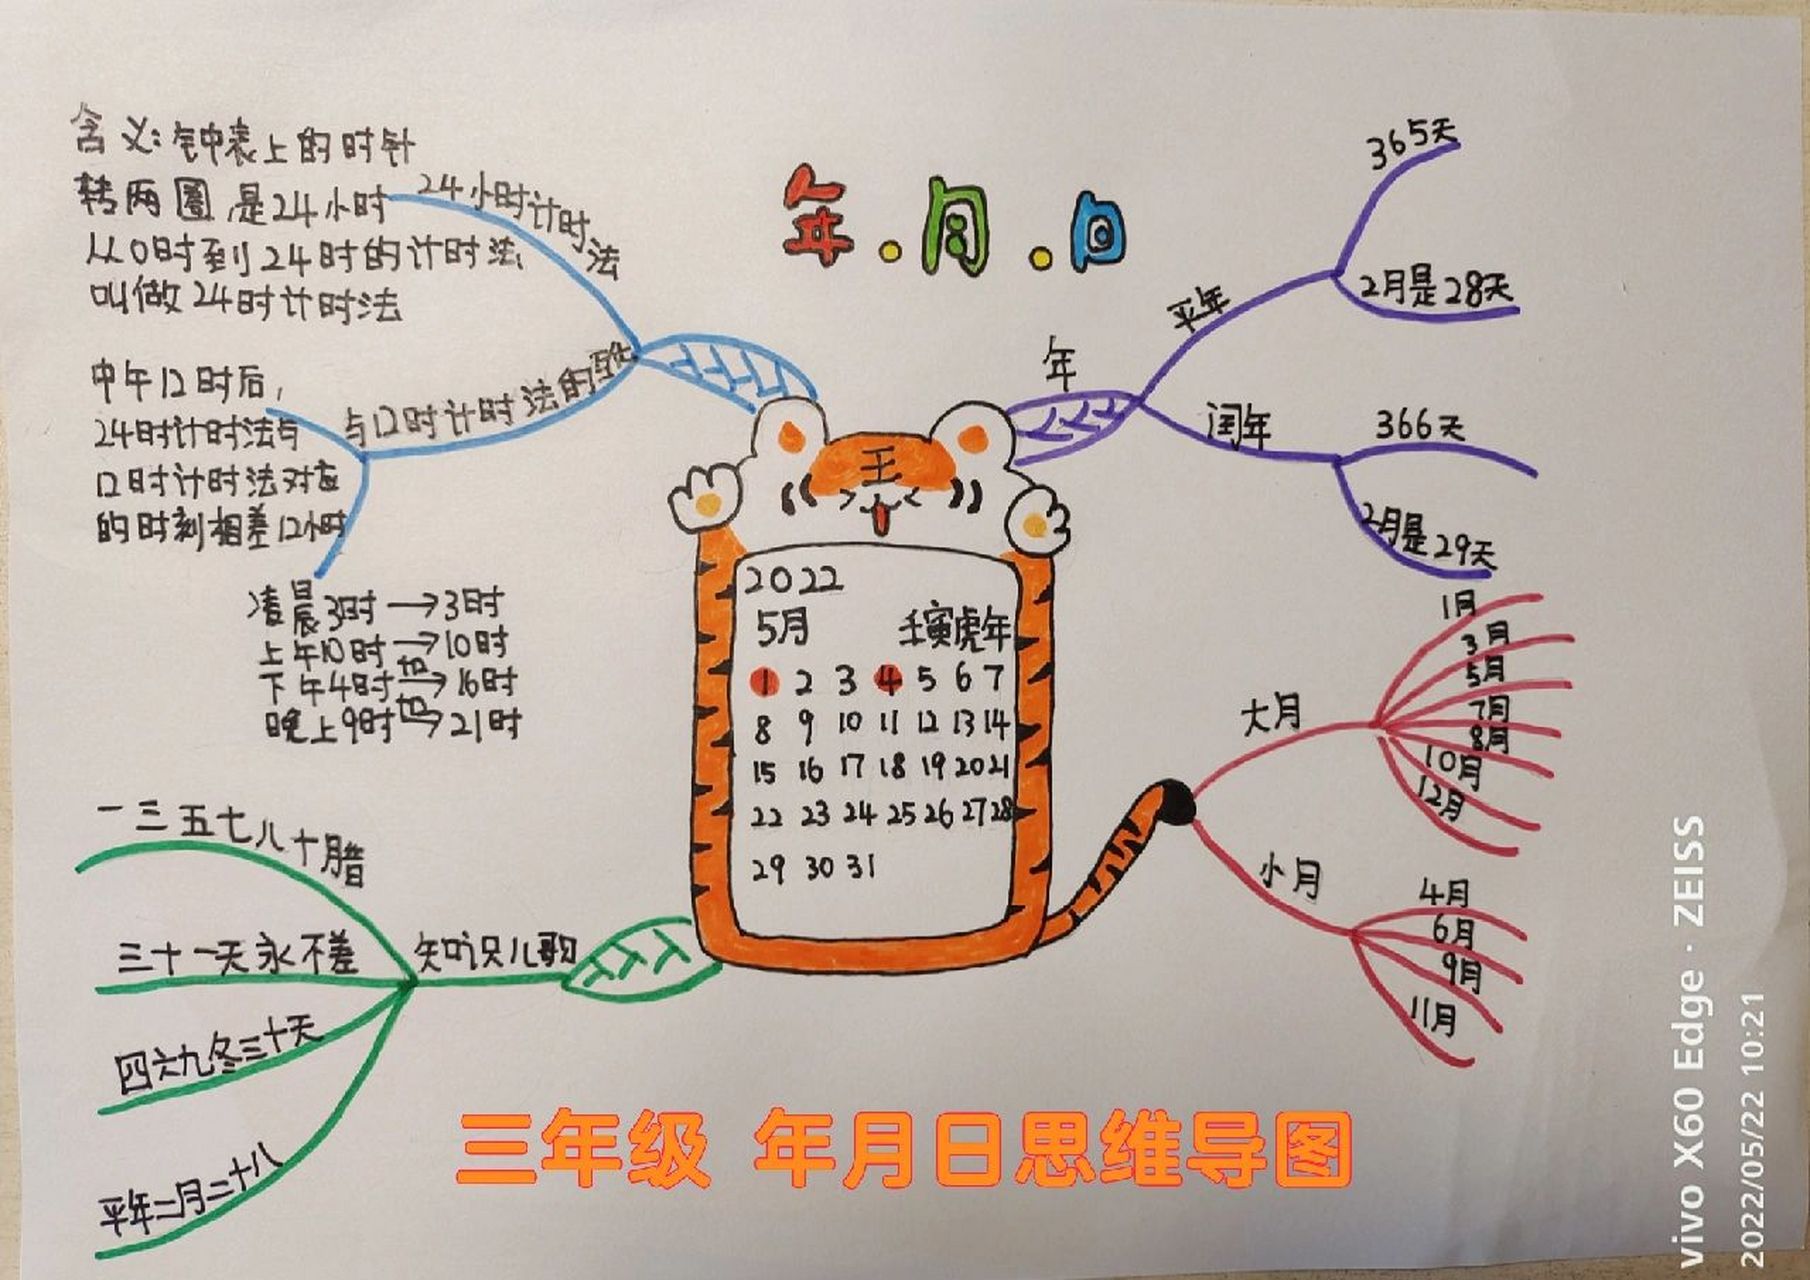 年.月.日
含义:钟表上的时针
转两圈是24小时
从0时到24时的计时法
叫做24时计时法
24小时计时法
中午12时后,
24时计时法与
12时计时法对应
的时刻相差12小时
与12时计时法的互化
凌晨3时→3时
上午10时→10时
下午4时→16时
晚上9时→21时
年
平年
365天
2月是28天
闰年
366天
2月是29天
王
2022
5月 壬寅虎年
1 2 3 4 5 6 7
8 9 10 11 12 13 14
15 16 17 18 19 20 21
22 23 24 25 26 27 28
29 30 31
大月
1月
3月
5月
7月
8月
10月
12月
小月
4月
6月
9月
11月
知识儿歌
一三五七八十腊
三十一天永不差
四六九冬三十天
平年二月二十八
三年级 年月日思维导图
vivo X60 Edge · ZEISS
2022/05/22 10:21